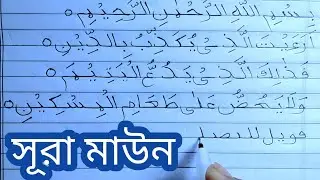 بِسْمِ اللهِ الرَّحْمٰنِ الرَّحِيْمِ ○
اَرَءَيْتَ الَّذِىْ يُكَذِّبُ بِالدِّيْنِ ○
فَذٰلِكَ الَّذِىْ يَدُعُّ الْيَتِيْمَ ○
وَلَا يَحُضُّ عَلٰى طَعَامِ الْمِسْكِيْنِ ○
فويل للمصل
সূরা মাউন